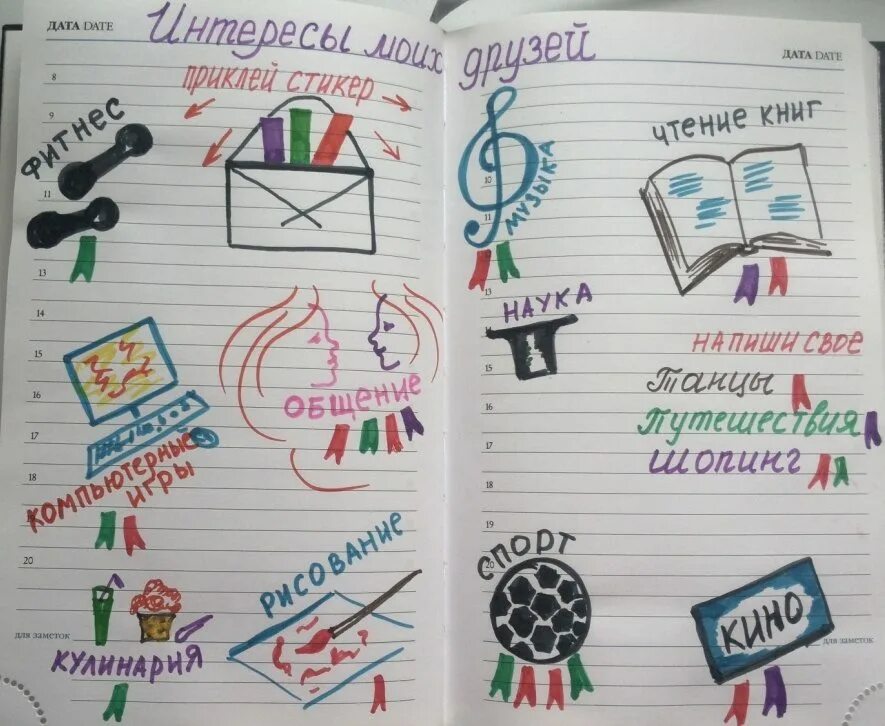 ДАТА DATE
Интересы моих друзей
ДАТА DATE
приклей стикер
8
9
ФИТНЕС
11
13
14
15
16
ОБЩЕНИЕ
17
18
КОМПЬЮТЕРНЫЕ
ИГРЫ
20
РИСОВАНИЕ
для заметок
КУЛИНАРИЯ
ЧТЕНИЕ КНИГ
МУЗЫКА
10
11
13
НАУКА
14
НАПИШИ СВОЕ
15
Танцы
16
Путешествия
17
Шопинг
18
19
СПОРТ
20
КИНО
для заметок